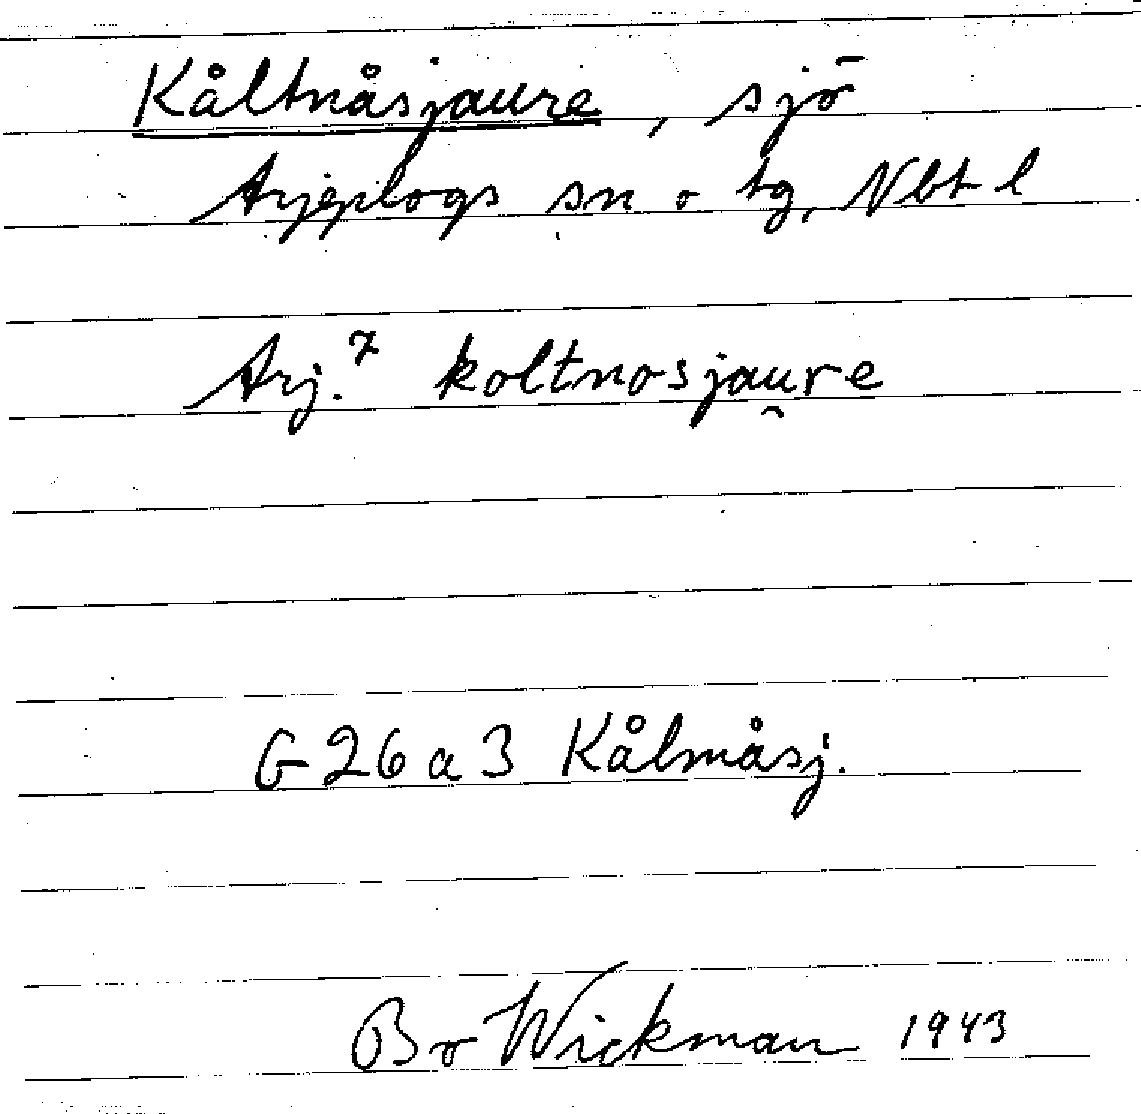 Kåltnåsjaure, sjö
Arjeplogs sn o tg, Nbt l
Arj.⁷ koltnosjau̯re
G 26 a 3 Kålmåsj.
Bo Wickman 1943